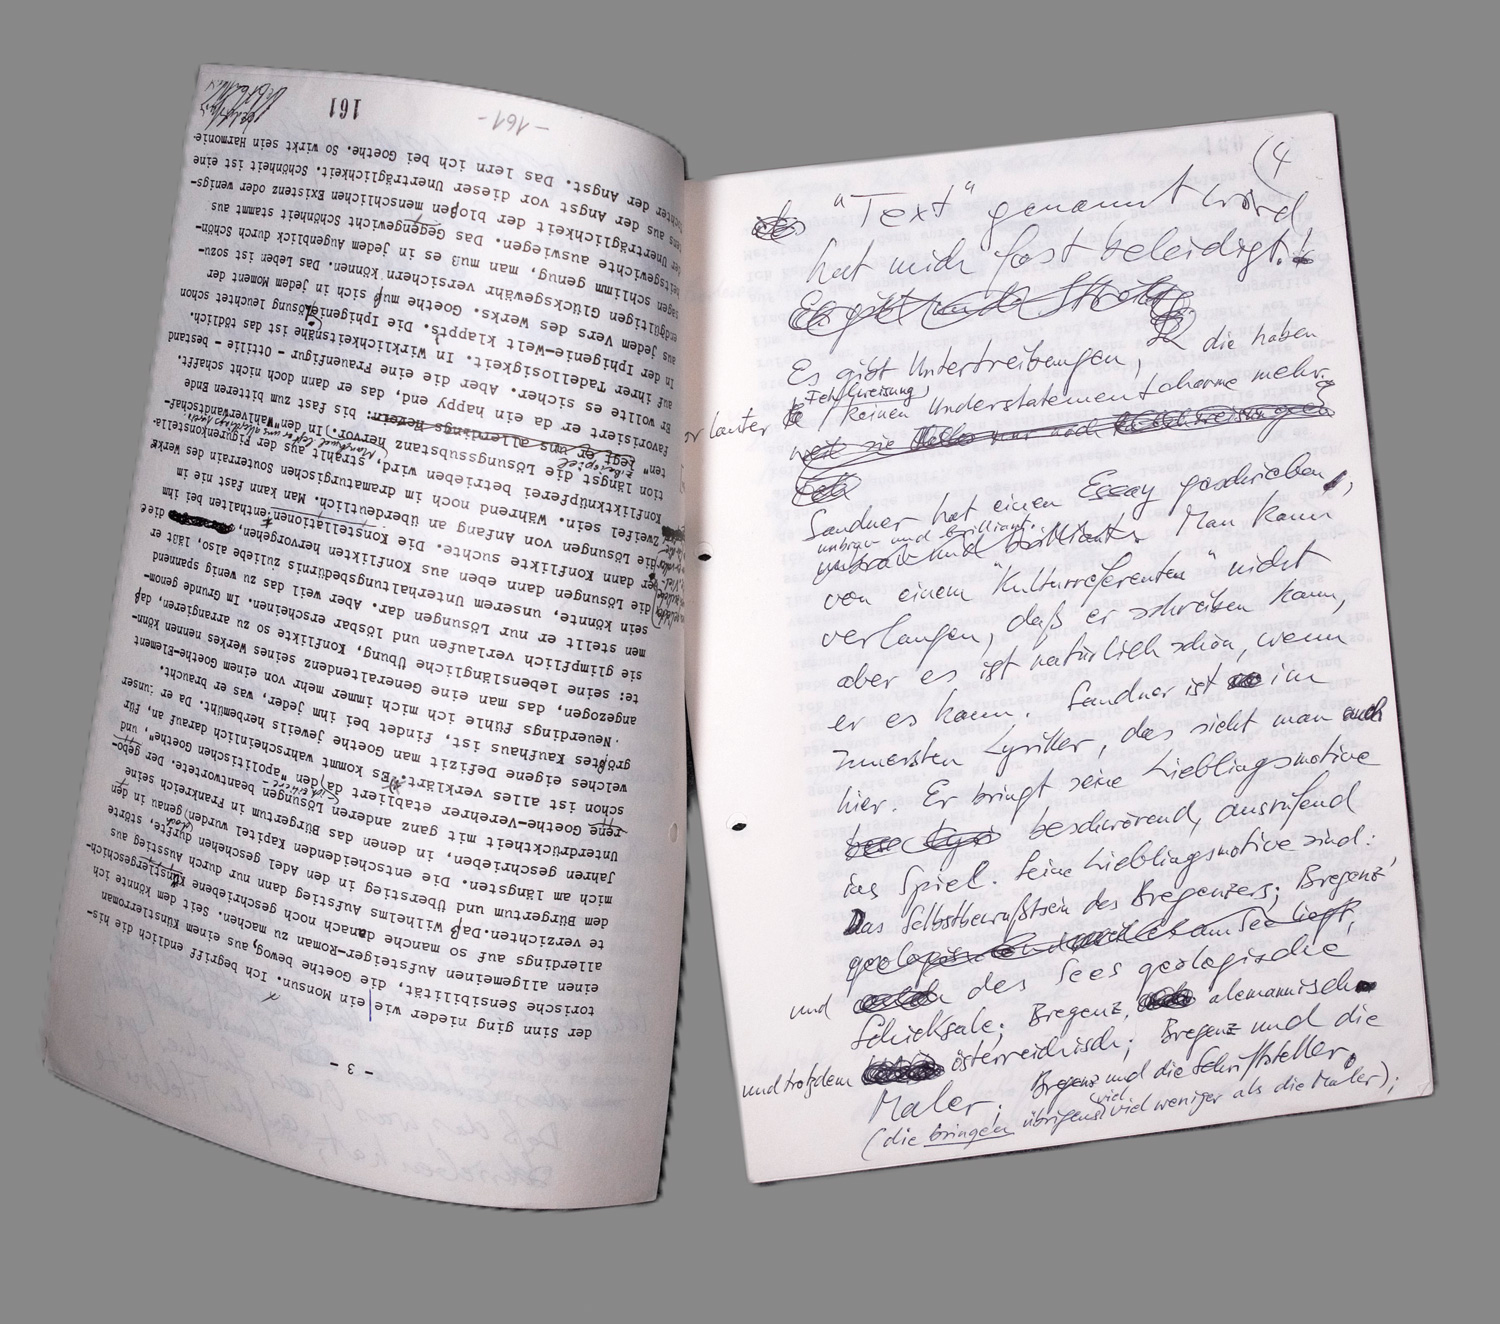 - 3 -
der Sinn ging nieder wie ein Monsun. Ich begriff endlich die his-
torische Sensibilität, die Goethe bewog, aus einem Künstlerroman
einen allgemeinen Aufsteiger-Roman zu machen. Seit dem könnte ich
allerdings auf so manche danach noch geschriebene Künstlergeschich-
te verzichten. Daß Wilhelms Aufstieg dann nur durch Ausstieg aus
dem Bürgertum und Überstieg in den Adel geschehen durfte, störte
mich am längsten. Die entscheidenden Kapitel wurden doch genau in den
Jahren geschrieben, in denen das Bürgertum in Frankreich seine
Unterdrücktheit mit ganz anderen Lösungen beantwortete. Der gebo-
rene Goethe-Verehrer etabliert da den "apolitischen Goethe", und
schon ist alles verklärt. Es kommt wahrscheinlich darauf an, für
welches eigene Defizit man Goethe jeweils herbemüht. Da er unser
größtes Kaufhaus ist, findet bei ihm jeder, was er braucht.
Neuerdings fühle ich mich immer mehr von einem Goethe-Element
angezogen, das man eine Generaltendenz seines Werkes nennen könn-
te: seine lebenslängliche Übung, Konflikte so zu arrangieren, daß
sie glimpflich verlaufen und lösbar erscheinen. Im Grunde genom-
men stellt er nur Lösungen dar. Aber weil das zu wenig spannend
sein könnte, unserem Unterhaltungsbedürfnis zuliebe also, läßt er
die Lösungen dann eben aus Konflikten hervorgehen, die
er dann Konflikte suchte. Die Konstellationen enthalten bei ihm
die Lösungen von Anfang an überdeutlich. Man kann fast nie im
Zweifel sein. Während noch im dramaturgischen Souterrain des Werks
Konfliktknüpferei betrieben wird, strahlt aus der Figurenkonstella-
tion längst die Lösungssubstanz hervor. In den "Wahlverwandtschaf-
ten" legt er uns allerdings herein: bis fast zum bitteren Ende
favorisiert er da ein happy end, das er dann doch nicht schafft.
Er wollte es sicher. Aber die eine Frauenfigur - Ottilie - bestand
auf ihrer Tadellosigkeit. In Wirklichkeitsnähe ist das tödlich.
In der Iphigenie-Welt klappts. Die Iphigenielösung leuchtet schon
aus jedem Vers des Werks. Goethe muß sich in jedem Moment der
endgültigen Glücksgewähr versichern können. Das Leben ist sozu-
sagen schlimm genug, man muß es in jedem Augenblick durch Schön-
heitsgewichte auswiegen. Das Gegengewicht Schönheit stammt aus
der Unerträglichkeit der bloßen menschlichen Existenz oder wenigs-
tens aus der Angst vor dieser Unerträglichkeit. Schönheit ist eine
Tochter der Angst. Das lern ich bei Goethe. So wirkt sein Harmonie-
161
- 161 -
(4
"Text" genannt wird
hat mich fast beleidigt.
Es gibt Untertreibungen, die haben
vor lauter Feinschmeckung keinen Understatementcharme mehr.
Sandner hat einen Essay geschrieben,
unbrav und brillant. Man kann
von einem "Kulturreferenten" nicht
verlangen, daß er schreiben kann,
aber es ist natürlich schön, wenn
er es kann. Sandner ist im
Innersten Lyriker, das sieht man auch
hier. Er bringt seine Lieblingsmotive
beschwörend, ausrufend
ins Spiel. Seine Lieblingsmotive sind:
Das Selbstbewußtsein des Bregenzers; Bregenz'
und des Sees geologische
Schicksale; Bregenz, alemannisch
und trotzdem österreichisch; Bregenz und die
Maler; Bregenz und die Schriftsteller
(die bringen übrigens viel weniger als die Maler);